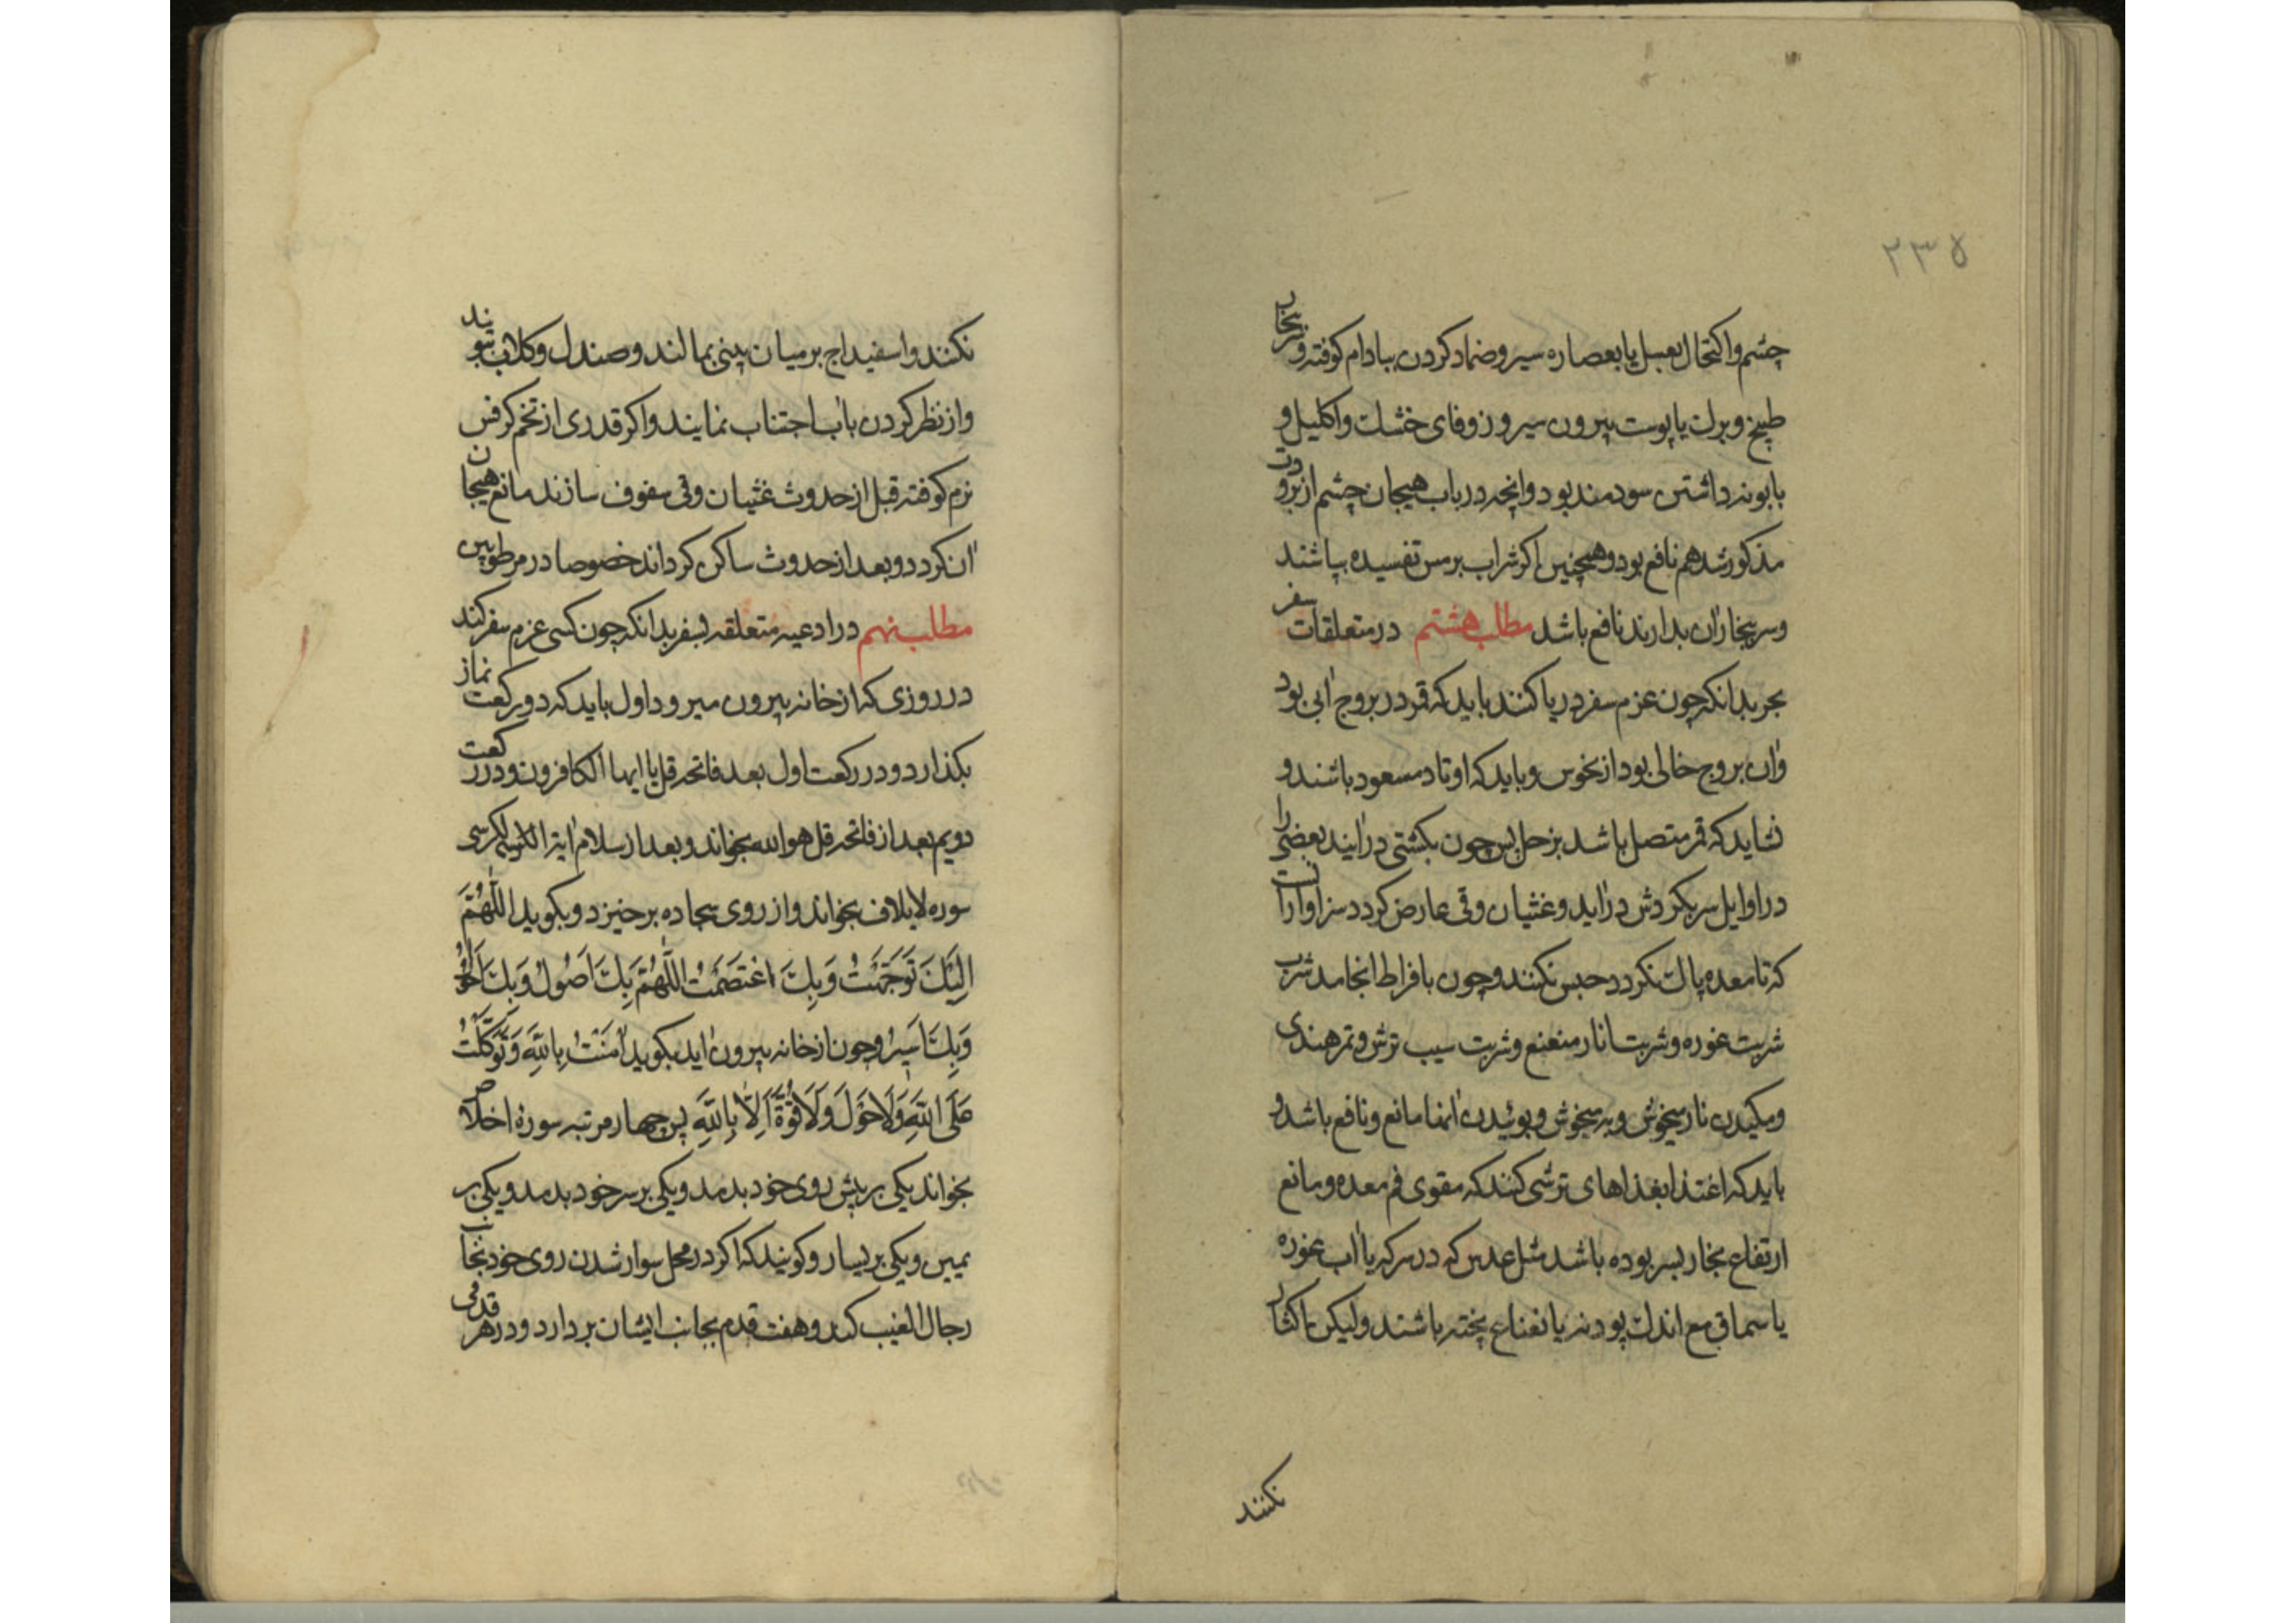 ۲۳۵
چشم و اکتحال بعسل یا بعصاره سیر و ضماد کردن ببادام کوفته و بخار
طبیخ و برک یا پوست بیرون سیر و زوفای خشک و اکلیل و
بابونه داشتن سودمند بود و انچه در باب هیجان چشم از برودت
مذکور شد هم نافع بود و همچنین اکر شراب بر مس تفسیده بپاشند
و سر ببخار آن بدارند نافع باشد مطلب هشتم در متعلقات سفر
بحر بدانکه چون عزم سفر دریا کنند باید که قمر در بروج آبی بود
و آن بروج خالی بود از نحوس و باید که اوتاد مسعود باشند و
نشاید که قمر متصل باشد بزحل پس چون بکشتی درآیند بعضی را
در اوایل سر بکردش درآید و غثیان و قی عارض کردد سزاوار آنست
که تا معده پاک نکردد حبس نکنند و چون بافراط انجامد شرب
شربت غوره و شربت انار منعنع و شربت سیب ترش و تمر هندی
و مکیدن نار میخوش و به میخوش و بوئیدن آنها مانع و نافع باشد و
باید که اغتذا بغذاهای ترشی کنند که مقوی فم معده و مانع
ارتفاع بخار بسر بوده باشد مثل عدس که در سرکه یا آب غوره
یا سماق مع اندک پودنه یا نعناع پخته باشند و لیکن اکثار
نکنند
نکنند و اسفیداج بر میان بینی بمالند و صندل و کلاب بویند
و از نظر کردن بآب اجتناب نمایند و اکر قدری از تخم کرفس
نرم کوفته قبل از حدوث غثیان و قی سفوف سازند مانع هیجان
آن کردد و بعد از حدوث ساکن کرداند خصوصا در مرطوبین
مطلب نهم در ادعیه متعلقه بسفر بدانکه چون کسی عزم سفر کند
در روزی که از خانه بیرون میرود اول باید که دو رکعت نماز
بکذارد و در رکعت اول بعد فاتحه قل یا ایها الکافرون و در رکعت
دویم بعد از فاتحه قل هو الله بخواند و بعد از سلام آیة الکرسی
سوره لایلاف بخواند و از روی سجاده برخیزد و بکوید اللّٰهُمَّ
اِلَیْکَ تَوَجَّهْتُ وَبِکَ اعْتَصَمْتُ اللّٰهُمَّ بِکَ اَصُولُ وَبِکَ اَحُولُ
وَبِکَ اَسِیرُ و چون از خانه بیرون آید بکوید آمَنْتُ بِاللّٰهِ وَتَوَکَّلْتُ
عَلَی اللّٰهِ وَلَا حَوْلَ وَلَا قُوَّةَ اِلَّا بِاللّٰهِ پس چهار مرتبه سورۀ اخلاص
بخواند یکی بر پیش روی خود بدمد و یکی بر سر خود بدمد و یکی بر
یمین و یکی بر یسار و کویند که اکر در محل سوار شدن روی خود بجانب
رجال الغیب کند و هفت قدم بجانب ایشان بردارد و در هر قدمی